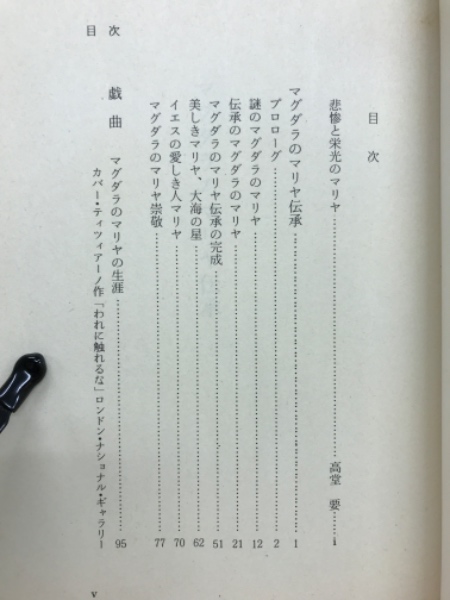 目次
目次
悲惨と栄光のマリヤ……………高堂 要……i
マグダラのマリヤ伝承……………1
プロローグ……………2
謎のマグダラのマリヤ……………12
伝承のマグダラのマリヤ……………21
マグダラのマリヤ伝承の完成……………51
美しきマリヤ、大海の星……………62
イエスの愛しき人マリヤ……………70
マグダラのマリヤ崇敬……………77
戯曲 マグダラのマリヤの生涯……………95
カバー・ティツィアーノ作「われに触れるな」ロンドン・ナショナル・ギャラリー
v